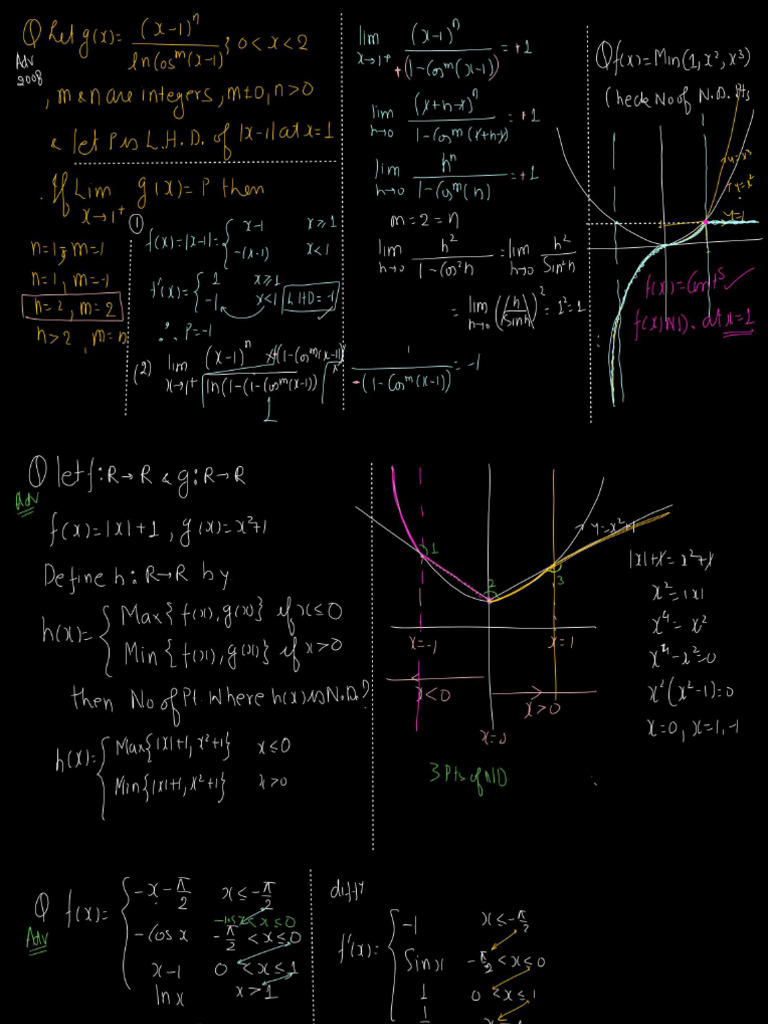 Q Let g(x) = (x-1)^n / ln(cos^m(x-1)) ; 0 < x < 2
Adv 2008
, m & n are integers, m ≠ 0, n > 0
& let P is L.H.D. of |x-1| at x = 1
. If Lim x→1+ g(x) = P then
n=1, m=1
n=1, m=-1
n=2, m=2
n>2, m=n
(1)
f(x) = |x-1| = { x-1 x ≥ 1
-(x-1) x < 1
f'(x) = { 1 x ≥ 1
-1 x < 1 LHD = -1
∴ P = -1
(2) lim x→1+ (x-1)^n x (1-Cos^m(x-1)) / ln(1-(1-Cos^m(x-1))
1
1 / -(1-Cos^m(x-1)) = -1
lim x→1+ (x-1)^n / +(1-Cos^m(x-1)) = +1
lim h→0 (x+h-x)^n / 1-Cos^m(x+h-x) = +1
lim h→0 h^n / 1-Cos^m(h) = +1
m = 2 = n
lim h→0 h^2 / 1-Cos^2h = lim h→0 h^2 / Sin^2h
= lim h→0 (h / Sinh)^2 = 1^2 = 1
Q f(x) = Min(1, x^2, x^3)
Check No of N.D. Pts
y=x^3
y=x^2
y=1
f(x) = Cont^s ✓
f(x) N.D. at x=1
Q let f: R→R & g: R→R
Adv
f(x) = |x|+1, g(x) = x^2+1
Define h: R→R by
h(x) = { Max{f(x), g(x)} if x ≤ 0
Min{f(x), g(x)} if x > 0
then No of Pt. Where h(x) is N.D.?
h(x) = { Max{|x|+1, x^2+1} x ≤ 0
Min{|x|+1, x^2+1} x > 0
y=x^2+1
1
2
3
x=-1
x=1
x<0
x>0
x=0
3 Pts of ND
|x|+1 = x^2+1
x^2 = |x|
x^4 = x^2
x^4 - x^2 = 0
x^2(x^2-1) = 0
x=0, x=1, -1
Q f(x) = { -x-π/2 x ≤ -π/2
Adv
-Cos x -π/2 < x ≤ 0
x-1 0 < x ≤ 1
ln x x > 1
diff
f'(x) = { -1 x ≤ -π/2
Sin x -π/2 < x ≤ 0
1 0 < x ≤ 1